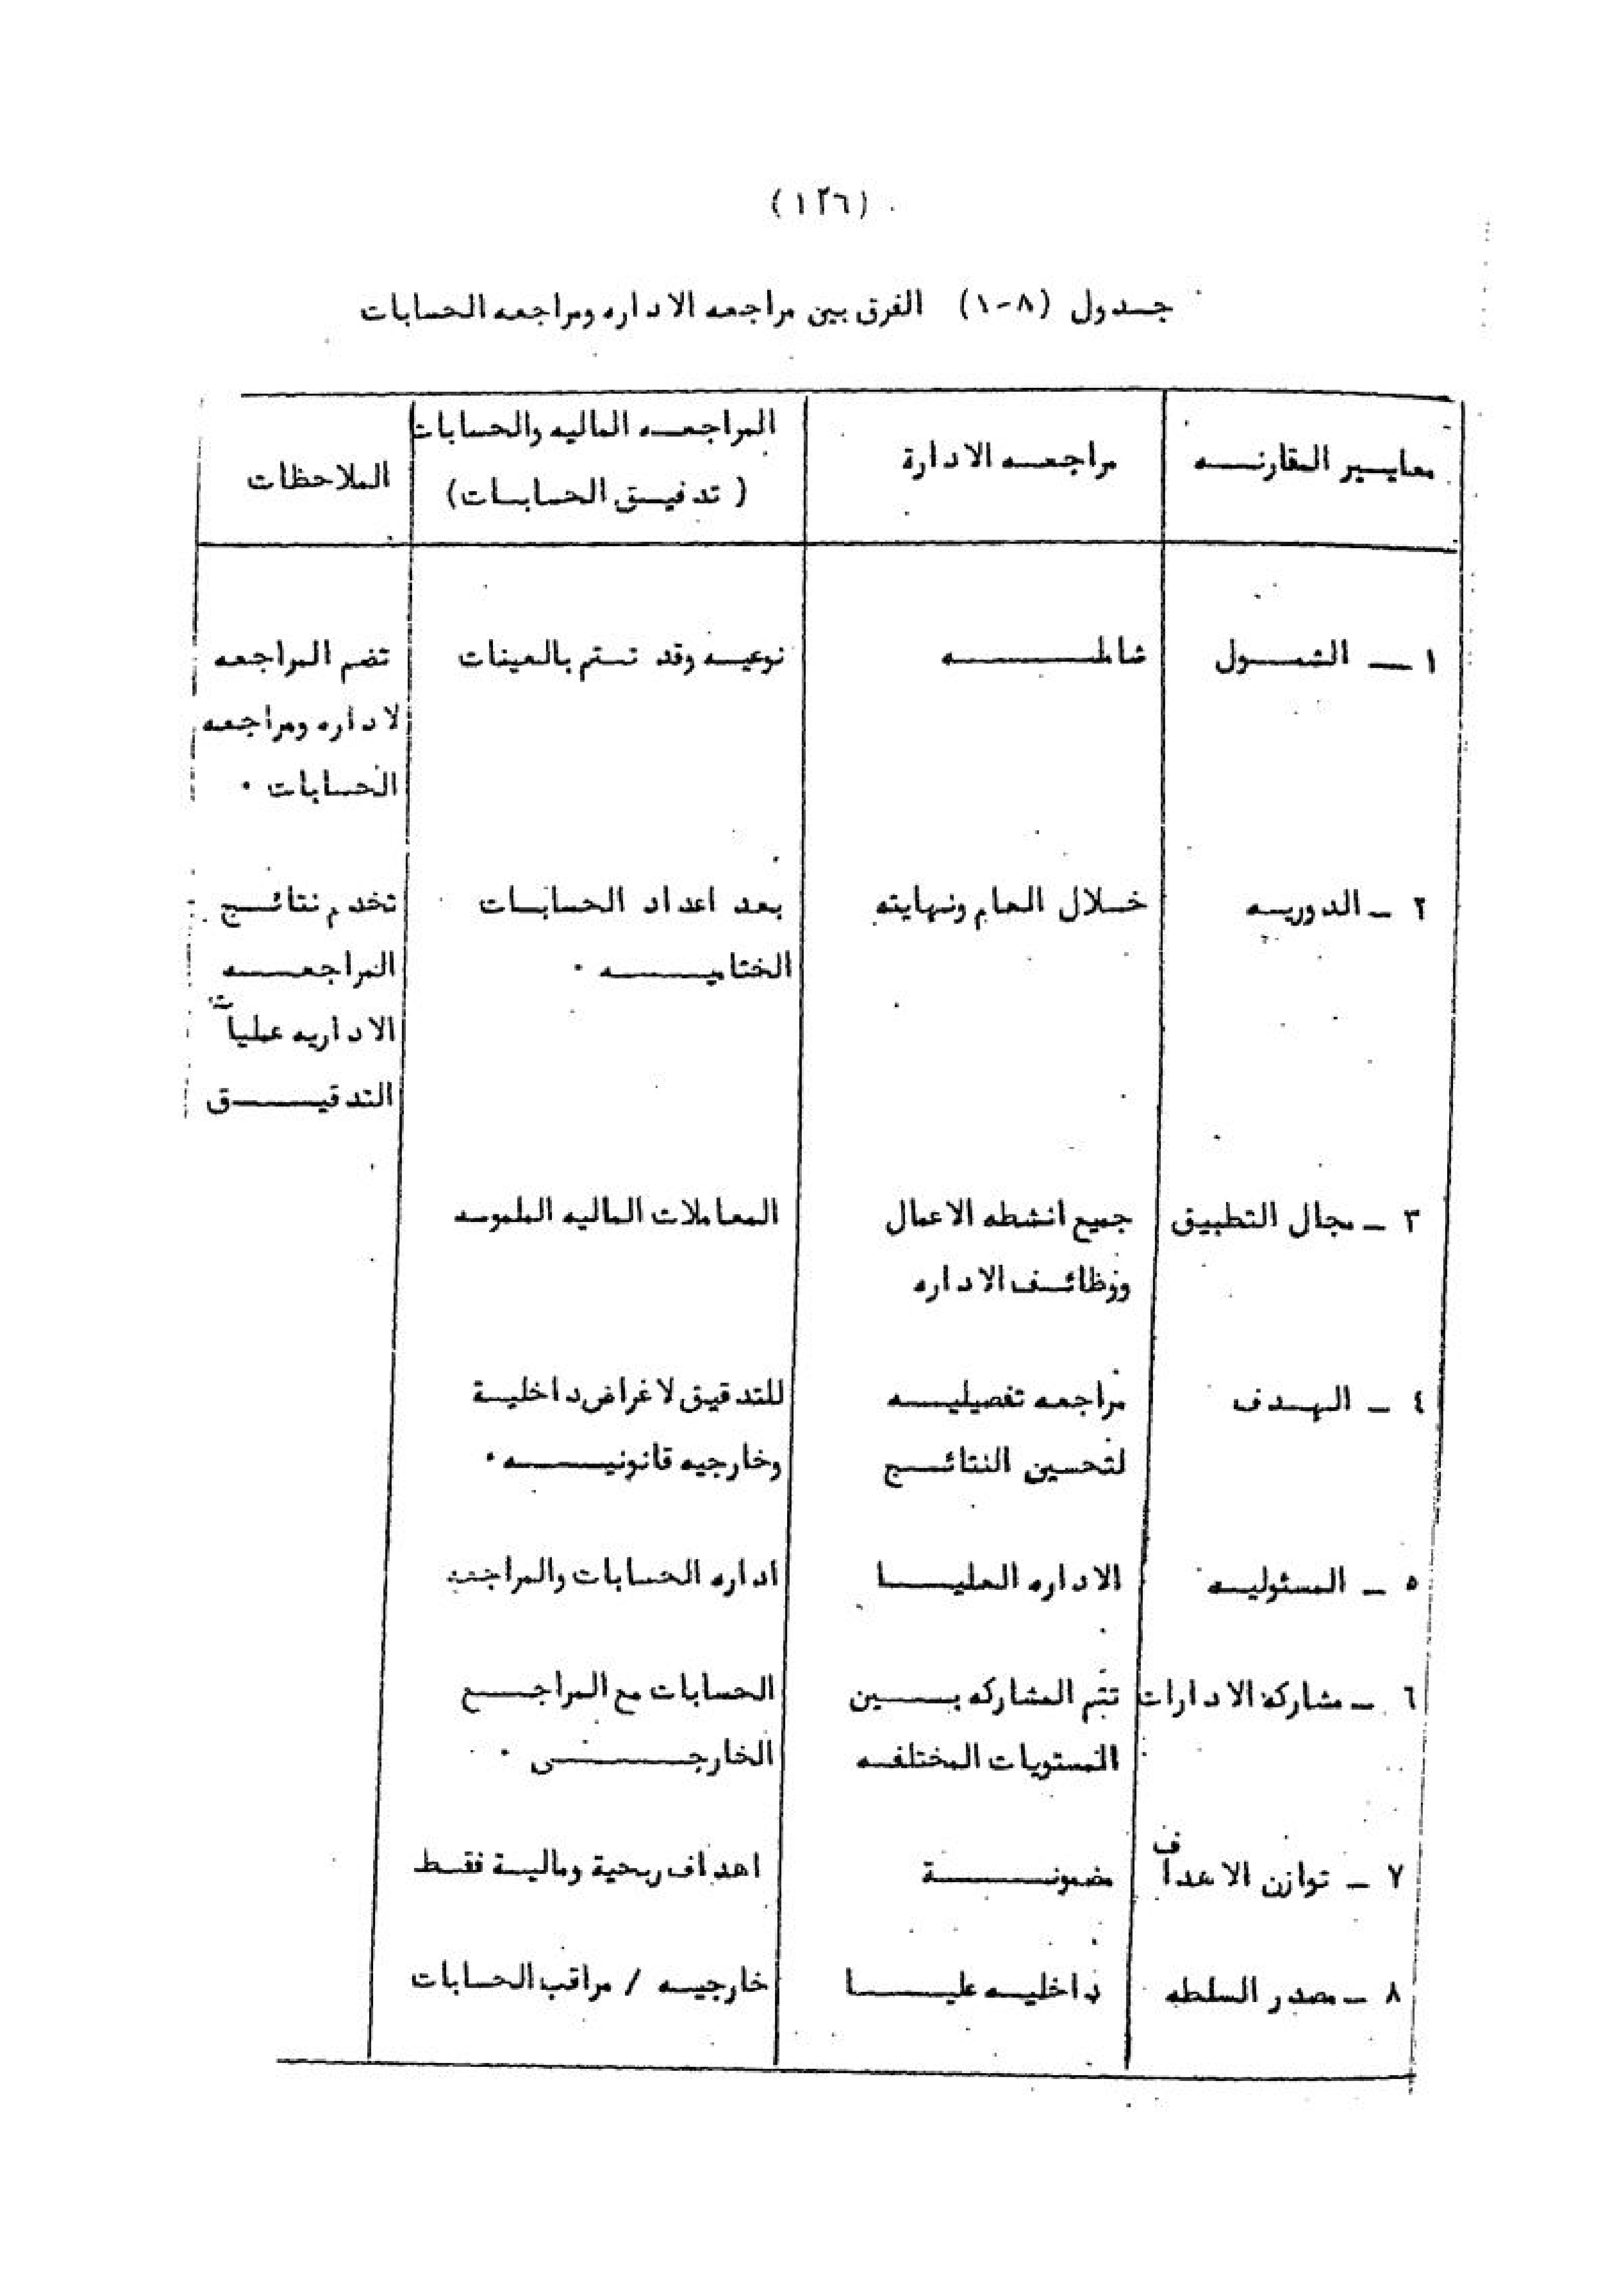 (١٢٦)
جدول (٨-١) الفرق بين مراجعه الاداره ومراجعه الحسابات
معايير المقارنه
مراجعه الادارة
المراجعه الماليه والحسابات
(تدقيق الحسابات)
الملاحظات
١ - الشمول
شامله
نوعيه وقد تتم بالعينات
تضم المراجعه
لاداره ومراجعه
الحسابات .
٢ - الدوريه
خلال العام ونهايته
بعد اعداد الحسابات
الختاميه .
تخدم نتائج
المراجعه
الاداريه عمليات
التدقيق
٣ - مجال التطبيق
جميع انشطه الاعمال
ووظائف الاداره
المعاملات الماليه الملموسه
٤ - الهدف
مراجعه تفصيليه
لتحسين النتائج
للتدقيق لاغراض داخلية
وخارجيه قانونيه .
٥ - المسئوليه
الاداره العليا
اداره الحسابات والمراجعه
٦ - مشاركة الادارات
تتم المشاركه بين
المستويات المختلفه
الحسابات مع المراجع
الخارجى .
٧ - توازن الاهداف
مضمونة
اهداف ربحية ومالية فقط
٨ - مصدر السلطه
داخليه عليا
خارجيه / مراقب الحسابات